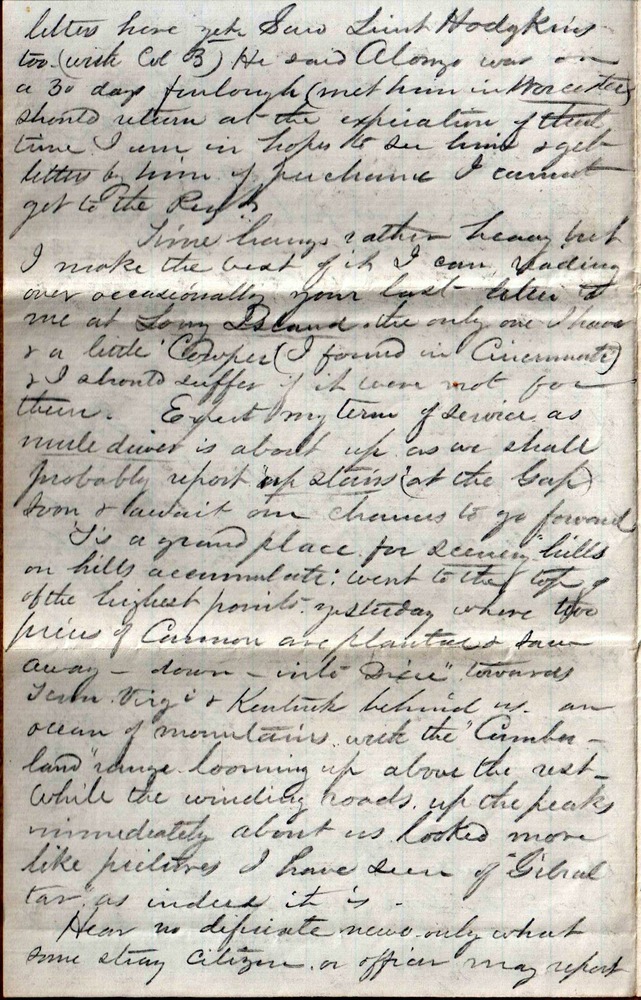 letters here yet. Saw Lieut Hodgkins
too (with Col B) He said Alonzo was on
a 30 days furlough (met him in Worcester)
should return at the expiration of that
time I am in hopes to see him & get
letters by him if perchance I cannot
get to the Regt.
Time hangs rather heavy but
I make the best of it I can, reading
over occasionally your last letter to
me at Long Island. the only one I have
& a little Cowper (I found in Cincinnati)
& I should suffer if it were not for
them. Expect my term of service as
mule driver is about up as we shall
probably report "up stairs" (at the Gap)
soon & await our chances to go forward
Tis a grand place for scenery "hills
on hills accumulate". went to the top of
of the highest points. yesterday where two
pieces of Cannon are planted & saw
away - down - into Dixie" towards
Tenn. Virg. & Kentuck behind us. an
ocean of mountains with the "Cumber-
land" range looming up above the rest -
While the winding roads. up the peaks
immediately about us looked more
like pictures I have seen of "Gibral
tar" as indeed it is -
Hear no difinate news. only what
some stray citizen. or officer may report